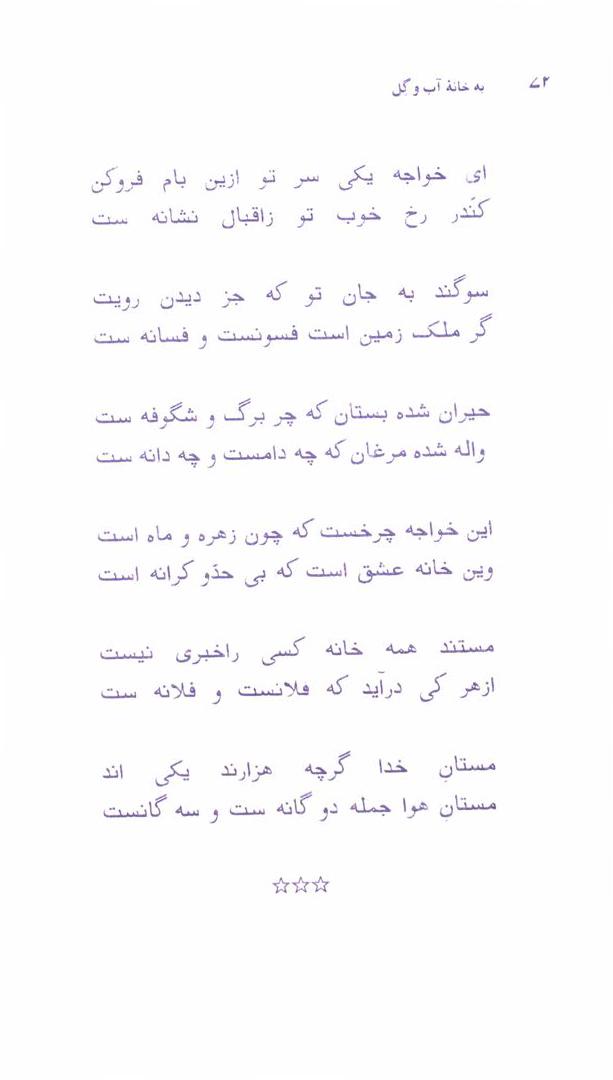 ۷۲ به خانهٔ آب و گِل
ای خواجه یکی سر تو ازین بام فروکن
کَندر رخ خوب تو زاقبال نشانه ست
سوگند به جان تو که جز دیدن رویت
گر ملک زمین است فسونست و فسانه ست
حیران شده بستان که چر برگ و شگوفه ست
واله شده مرغان که چه دامست و چه دانه ست
این خواجه چرخست که چون زهره و ماه است
وین خانه عشق است که بی حدّو کرانه است
مستند همه خانه کسی راخبری نیست
ازهر کی درآید که فلانست و فلانه ست
مستانِ خدا گرچه هزارند یکی اند
مستانِ هوا جمله دو گانه ست و سه گانست
☆☆☆